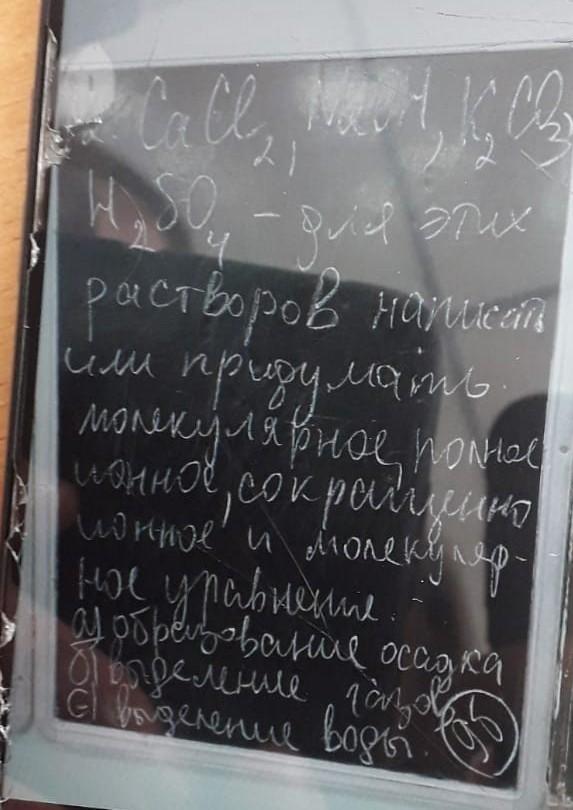 CaCl2, NaOH, K2CO3
H2SO4 – для этих
растворов написать
или придумать
молекулярное, полное
ионное, сокращенно
ионное и молекуляр-
ное уравнение.
а) образование осадка
б) выделение газов
с) выделение воды.